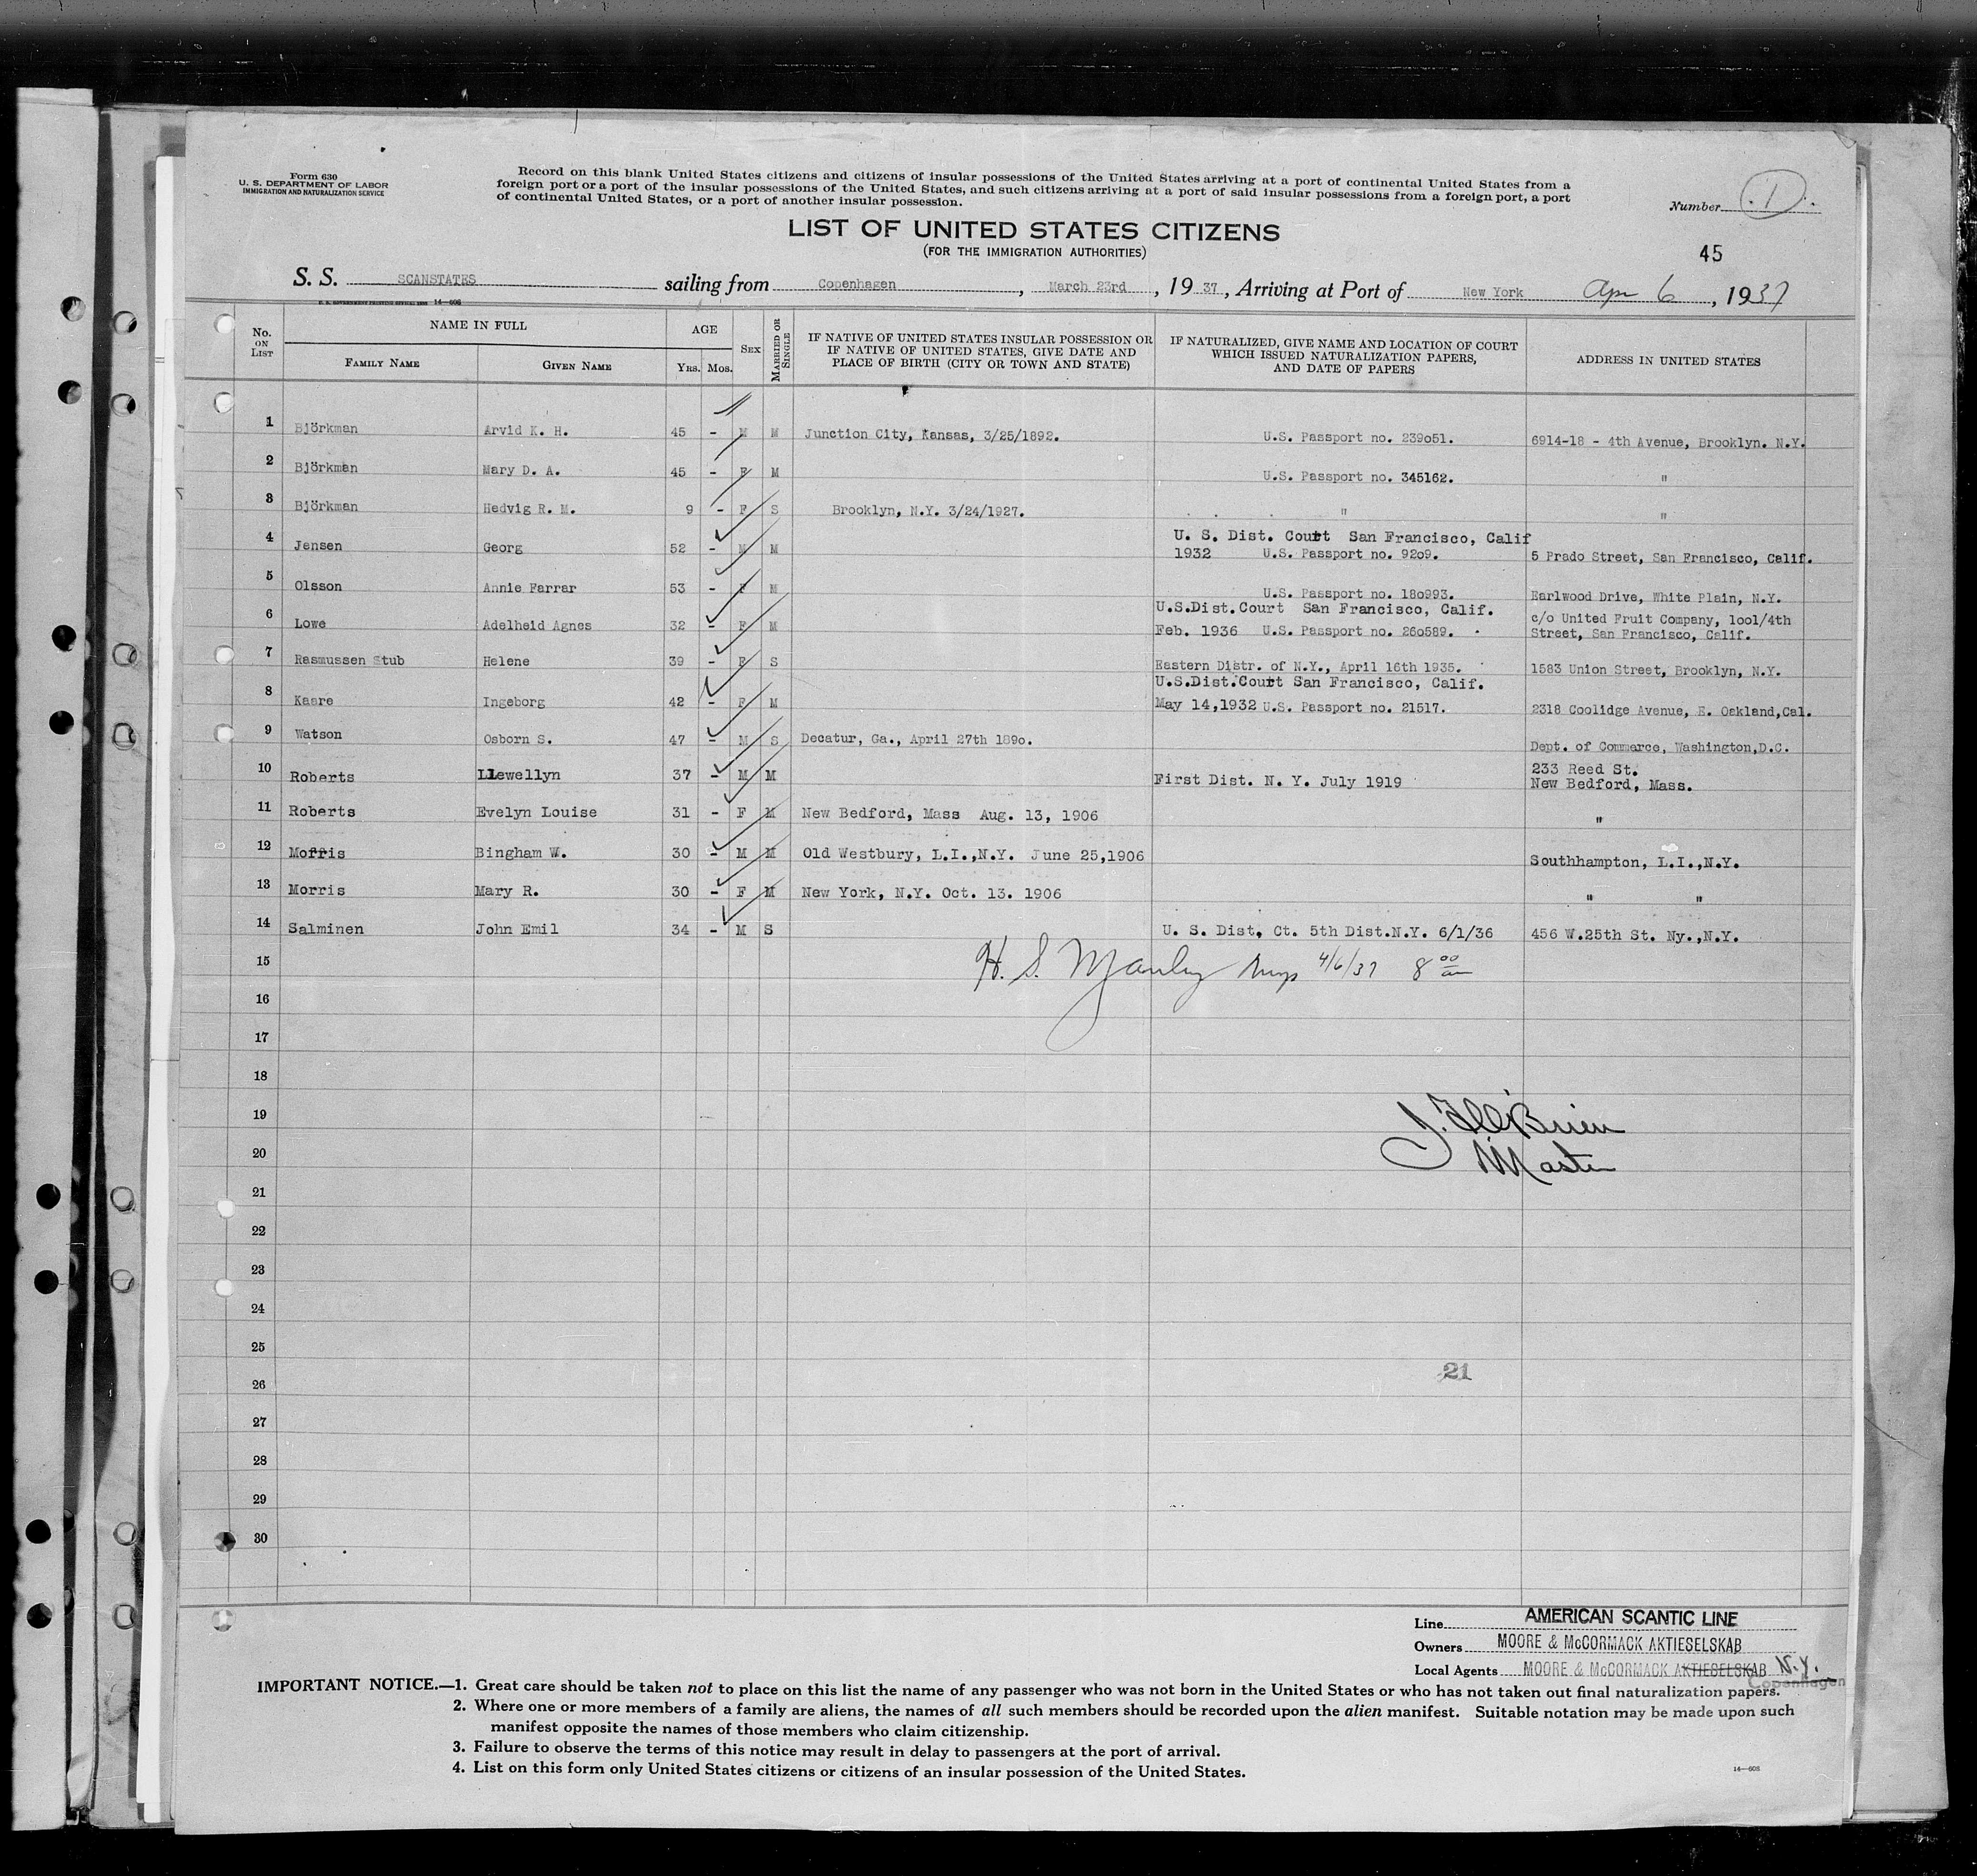 Form 630
U. S. DEPARTMENT OF LABOR
IMMIGRATION AND NATURALIZATION SERVICE
Record on this blank United States citizens and citizens of insular possessions of the United States arriving at a port of continental United States from a
foreign port or a port of the insular possessions of the United States, and such citizens arriving at a port of said insular possessions from a foreign port, a port
of continental United States, or a port of another insular possession.
Number 1
LIST OF UNITED STATES CITIZENS
(FOR THE IMMIGRATION AUTHORITIES)
45
S. S. SCANSTATES sailing from Copenhagen, March 23rd, 1937, Arriving at Port of New York Apr 6, 1937
14—608
No. ON LIST
NAME IN FULL
FAMILY NAME
GIVEN NAME
AGE
YRS. MOS.
SEX
MARRIED OR SINGLE
IF NATIVE OF UNITED STATES INSULAR POSSESSION OR
IF NATIVE OF UNITED STATES, GIVE DATE AND
PLACE OF BIRTH (CITY OR TOWN AND STATE)
IF NATURALIZED, GIVE NAME AND LOCATION OF COURT
WHICH ISSUED NATURALIZATION PAPERS,
AND DATE OF PAPERS
ADDRESS IN UNITED STATES
1 Björkman Arvid K. H. 45 - M M Junction City, Kansas, 3/25/1892. U.S. Passport no. 239o51. 6914-18 - 4th Avenue, Brooklyn. N.Y.
2 Björkman Mary D. A. 45 - F M U.S. Passport no. 345162. "
3 Björkman Hedvig R. M. 9 - F S Brooklyn, N.Y. 3/24/1927. " "
U. S. Dist. Court San Francisco, Calif
4 Jensen Georg 52 - M M 1932 U.S. Passport no. 92o9. 5 Prado Street, San Francisco, Calif.
5 Olsson Annie Farrar 53 - F M U.S. Passport no. 18o993. Earlwood Drive, White Plain, N.Y.
U.S.Dist.Court San Francisco, Calif. c/o United Fruit Company, 1oo1/4th
6 Lowe Adelheid Agnes 32 - F M Feb. 1936 U.S. Passport no. 26o589. Street, San Francisco, Calif.
7 Rasmussen Stub Helene 39 - F S Eastern Distr. of N.Y., April 16th 1935. 1583 Union Street, Brooklyn, N.Y.
U.S.Dist.Court San Francisco, Calif.
8 Kaare Ingeborg 42 - F M May 14,1932 U.S. Passport no. 21517. 2318 Coolidge Avenue, E. Oakland,Cal.
9 Watson Osborn S. 47 - M S Decatur, Ga., April 27th 189o. Dept. of Commerce, Washington,D.C.
233 Reed St.
10 Roberts Llewellyn 37 - M M First Dist. N. Y. July 1919 New Bedford, Mass.
11 Roberts Evelyn Louise 31 - F M New Bedford, Mass Aug. 13, 1906 "
12 Morris Bingham W. 30 - M M Old Westbury, L.I.,N.Y. June 25,1906 Southhampton, L.I.,N.Y.
13 Morris Mary R. 30 - F M New York, N.Y. Oct. 13. 1906 " "
14 Salminen John Emil 34 - M S U. S. Dist. Ct. 5th Dist.N.Y. 6/1/36 456 W.25th St. Ny.,N.Y.
15 H. S. Manley 4/6/37 8 00 am
16
17
18
19 J. O'Brien
20 Master
21
22
23
24
25
26 21
27
28
29
30
Line AMERICAN SCANTIC LINE
Owners MOORE & McCORMACK AKTIESELSKAB
Local Agents MOORE & McCORMACK AKTIESELSKAB N.Y.
Copenhagen
IMPORTANT NOTICE.—1. Great care should be taken not to place on this list the name of any passenger who was not born in the United States or who has not taken out final naturalization papers.
2. Where one or more members of a family are aliens, the names of all such members should be recorded upon the alien manifest. Suitable notation may be made upon such
manifest opposite the names of those members who claim citizenship.
3. Failure to observe the terms of this notice may result in delay to passengers at the port of arrival.
4. List on this form only United States citizens or citizens of an insular possession of the United States.
14—608